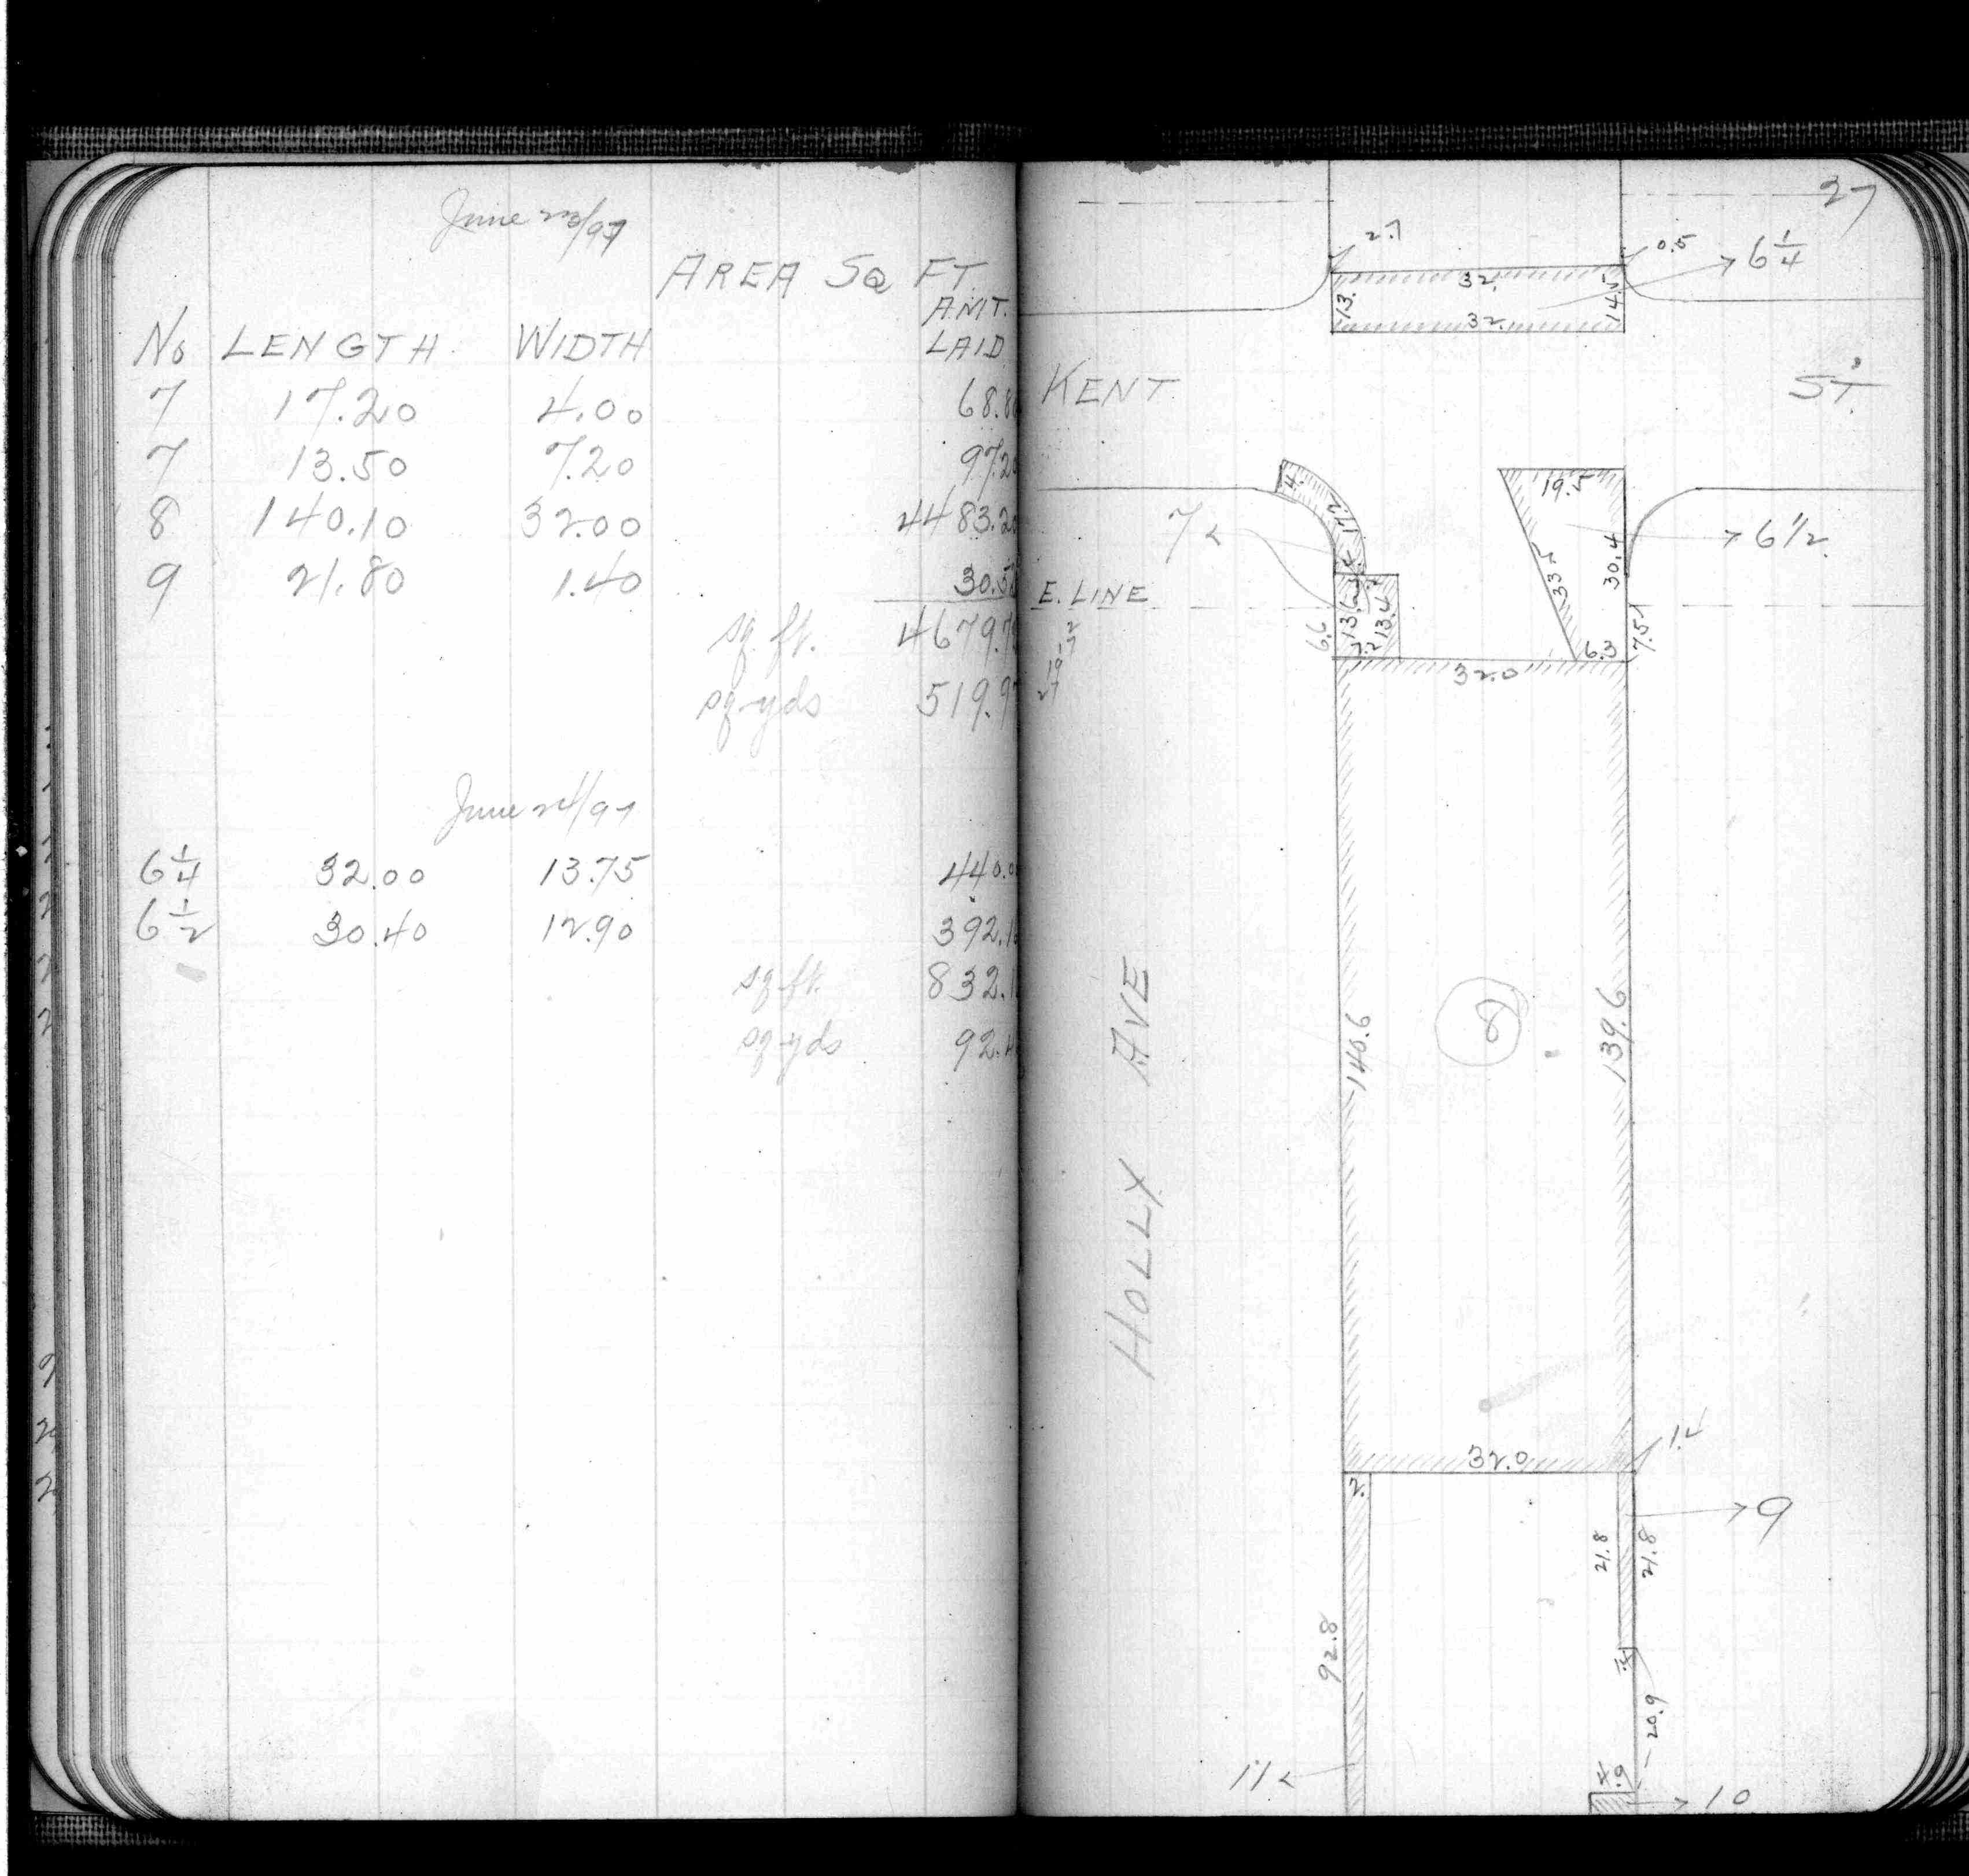 June 23/97
AREA SQ FT.
AMT.
No LENGTH WIDTH LAID
7 17.20 4.00 68.8
7 13.50 7.20 97.2
8 140.10 32.00 4483.2
9 21.80 1.40 30.5
sq. ft. 4679.7
sq-yds 519.9
June 24/97
6 1/4 32.00 13.75 440.0
6 1/2 30.40 12.90 392.1
sq ft. 832.1
sq-yds 92.4
27
2.7 0.5
6 1/4
32.
13. 14.5
32.
KENT ST.
4. 17.2 4.
19.5
7
6 1/2
33.5 30.4
E. LINE
6.6 13.6 13.4
7.2 6.3 7.5
32.0
140.6 8 139.6
HOLLY AVE
32.0 1.4
2.
9
21.8 21.8
92.8
20.9
4.9
11
10